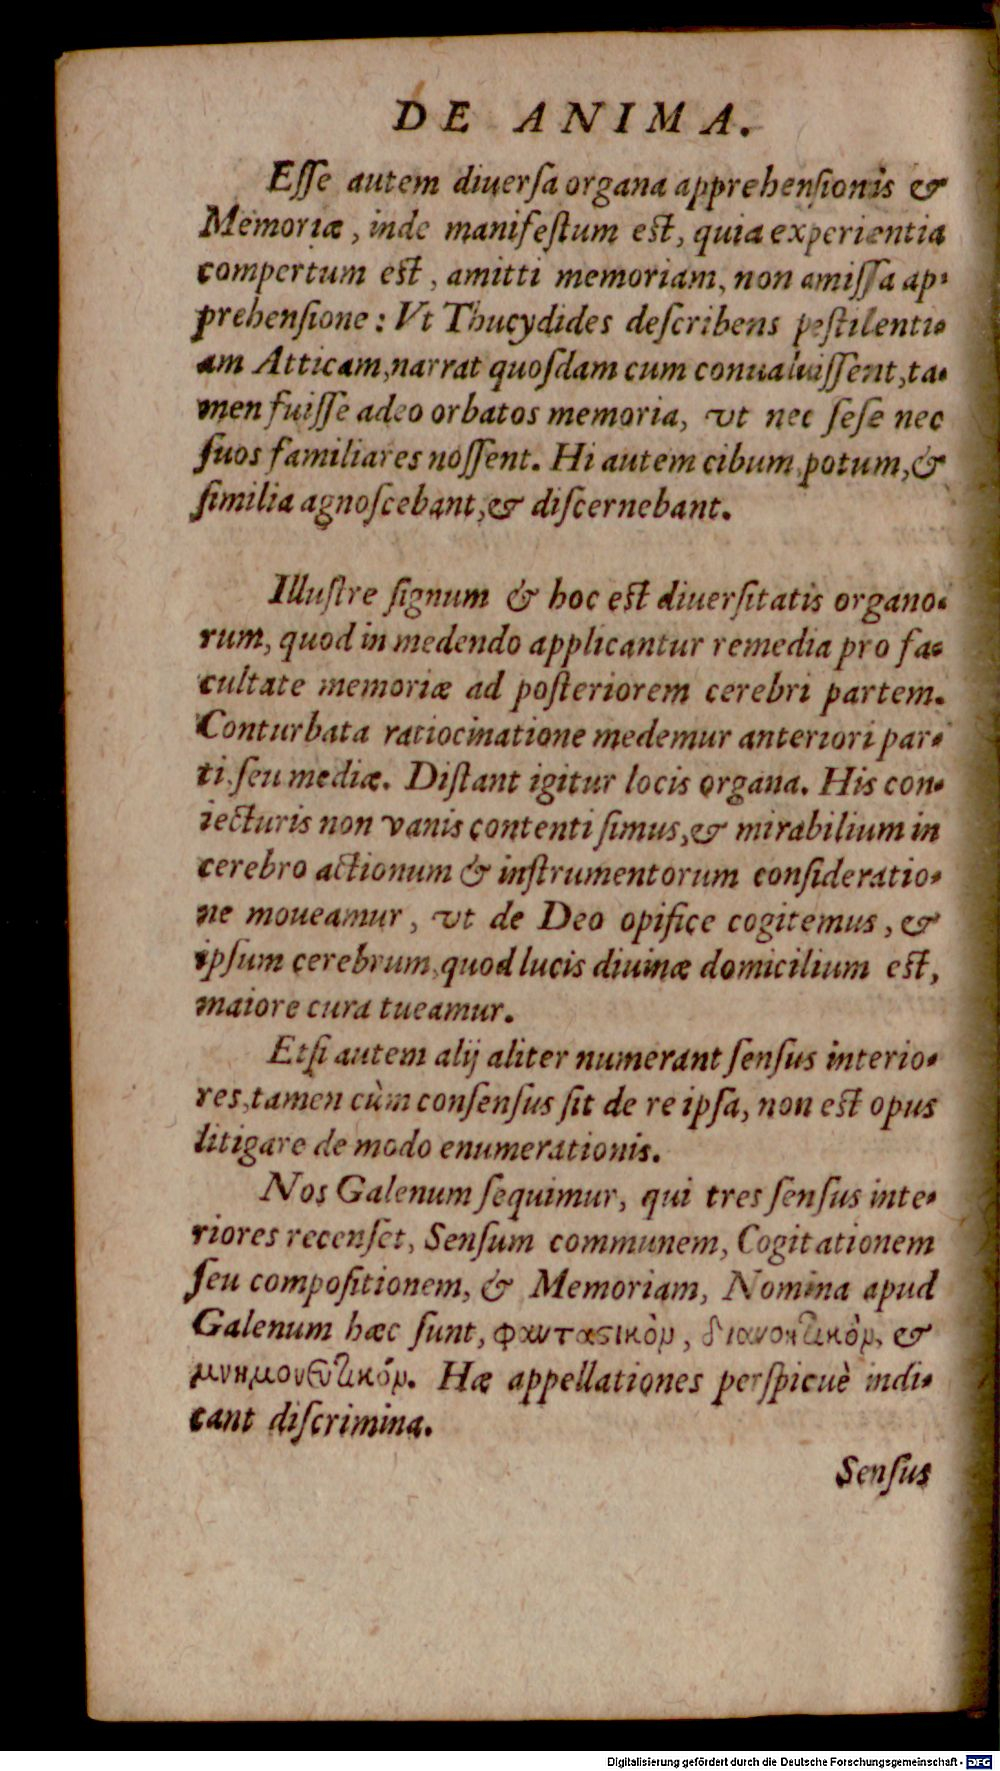 DE ANIMA.
Eſſe autem diuerſa organa apprehenſionis &
Memoriæ, inde manifeſtum eſt, quia experientia
compertum eſt, amitti memoriam, non amiſſa ap-
prehenſione: Vt Thucydides deſcribens peſtilenti-
am Atticam, narrat quoſdam cum conualuiſſent, ta-
men fuiſſe adeo orbatos memoria, vt nec ſeſe nec
ſuos familiares noſſent. Hi autem cibum, potum, &
ſimilia agnoſcebant, & diſcernebant.
Illuſtre ſignum & hoc eſt diuerſitatis organo-
rum, quod in medendo applicantur remedia pro fa-
cultate memoriæ ad poſteriorem cerebri partem.
Conturbata ratiocinatione medemur anteriori par-
ti, ſeu mediæ. Diſtant igitur locis organa. His con-
iecturis non vanis contenti ſimus, & mirabilium in
cerebro actionum & inſtrumentorum conſideratio-
ne moueamur, vt de Deo opifice cogitemus, &
ipſum cerebrum, quod lucis diuinæ domicilium eſt,
maiore cura tueamur.
Etſi autem alij aliter numerant ſenſus interio-
res, tamen cùm conſenſus ſit de re ipſa, non eſt opus
litigare de modo enumerationis.
Nos Galenum ſequimur, qui tres ſenſus inte-
riores recenſet, Senſum communem, Cogitationem
ſeu compoſitionem, & Memoriam, Nomina apud
Galenum hæc ſunt, φανταϛικὸν, διανοητικὸν, &
μνημονευτικόν. Hæ appellationes perſpicuè indi-
cant diſcrimina.
Senſus
Digitalisierung gefördert durch die Deutsche Forschungsgemeinschaft - DFG